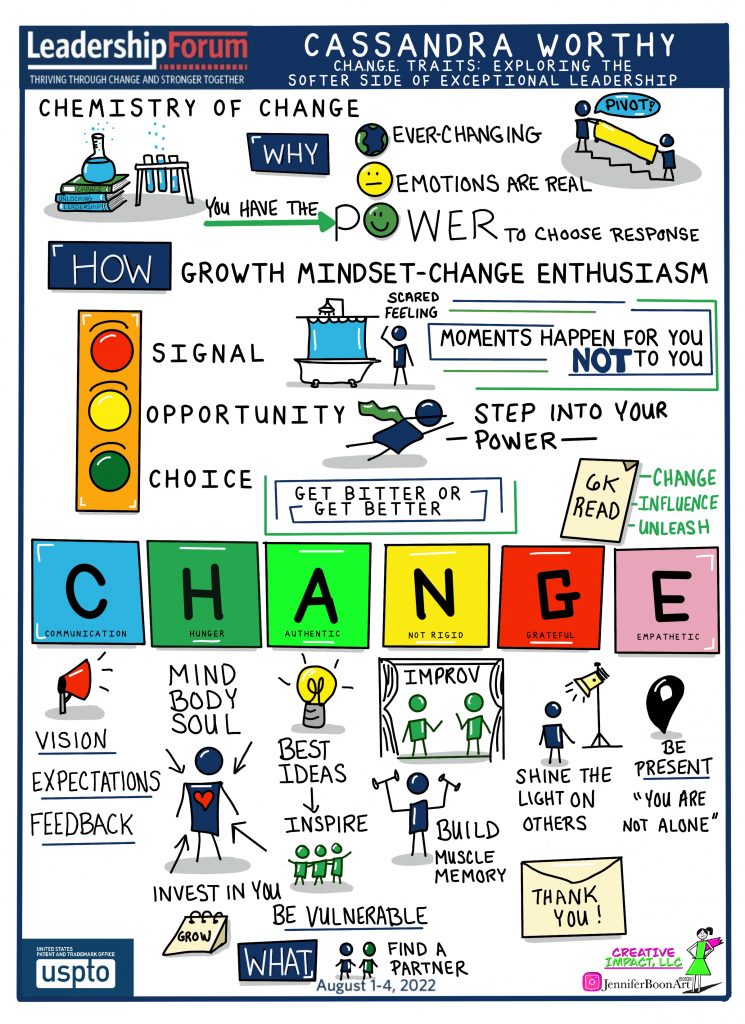 LeadershipForum
THRIVING THROUGH CHANGE AND STRONGER TOGETHER
CASSANDRA WORTHY
C.H.A.N.G.E. TRAITS: EXPLORING THE
SOFTER SIDE OF EXCEPTIONAL LEADERSHIP
CHEMISTRY OF CHANGE
CHANGE
UNLOCKING
LEADERSHIP
WHY
EVER-CHANGING
EMOTIONS ARE REAL
PIVOT!
YOU HAVE THE
POWER TO CHOOSE RESPONSE
HOW
GROWTH MINDSET-CHANGE ENTHUSIASM
SIGNAL
SCARED
FEELING
MOMENTS HAPPEN FOR YOU
NOT TO YOU
OPPORTUNITY
STEP INTO YOUR
—POWER—
CHOICE
GET BITTER OR
GET BETTER
6K
READ
-CHANGE
-INFLUENCE
-UNLEASH
C H A N G E
COMMUNICATION
HUNGER
AUTHENTIC
NOT RIGID
GRATEFUL
EMPATHETIC
VISION
EXPECTATIONS
FEEDBACK
MIND
BODY
SOUL
INVEST IN YOU
GROW
BEST
IDEAS
INSPIRE
BE VULNERABLE
IMPROV
BUILD
MUSCLE
MEMORY
SHINE THE
LIGHT ON
OTHERS
BE
PRESENT
"YOU ARE
NOT ALONE"
THANK
YOU!
WHAT
FIND A
PARTNER
UNITED STATES
PATENT AND TRADEMARK OFFICE
uspto
August 1-4, 2022
CREATIVE
IMPACT, LLC
JenniferBoonArt